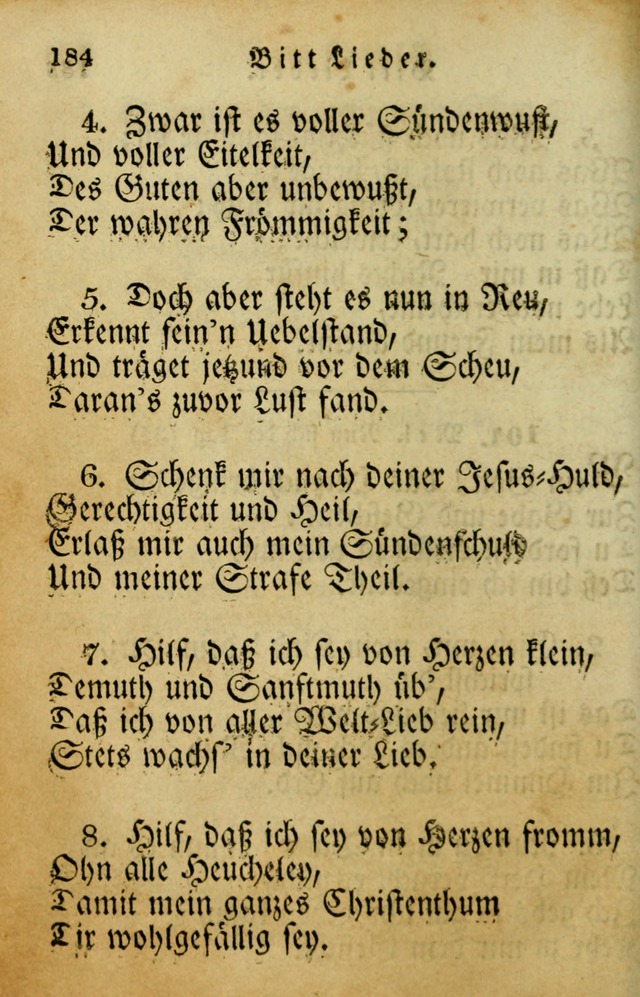 184 Bitt Lieder.
4. Zwar ist es voller Sündenwust,
Und voller Eitelkeit,
Des Guten aber unbewußt,
Der wahren Frömmigkeit;
5. Doch aber steht es nun in Reu,
Erkennt sein'n Uebelstand,
Und träget jetzund vor dem Scheu,
Daran's zuvor Lust fand.
6. Schenk mir nach deiner Jesus-Huld,
Gerechtigkeit und Heil,
Erlaß mir auch mein Sündenschuld
Und meiner Strafe Theil.
7. Hilf, daß ich sey von Herzen klein,
Demuth und Sanftmuth üb',
Daß ich von aller Welt-Lieb rein,
Stets wachs' in deiner Lieb.
8. Hilf, daß ich sey von Herzen fromm,
Ohn alle Heucheley,
Damit mein ganzes Christenthum
Dir wohlgefällig sey.